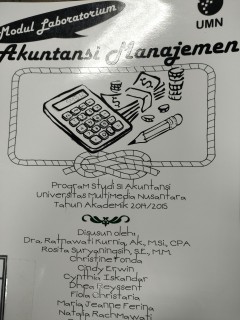 Modul Laboratorium
UMN
Akuntansi Manajemen
Program Studi S1 Akuntansi
Universitas Multimedia Nusantara
Tahun Akademik 2014/2015
Disusun oleh:
Dra. Ratnawati Kurnia, Ak, M.Si, CPA
Rosita Suryaningsih, S.E., M.M.
Christine Fonda
Cindy Erwin
Cynthia Iskandar
Dhea Geyssent
Fiola Christaria
Maria Jeanne Ferina
Natalia Rachmawati